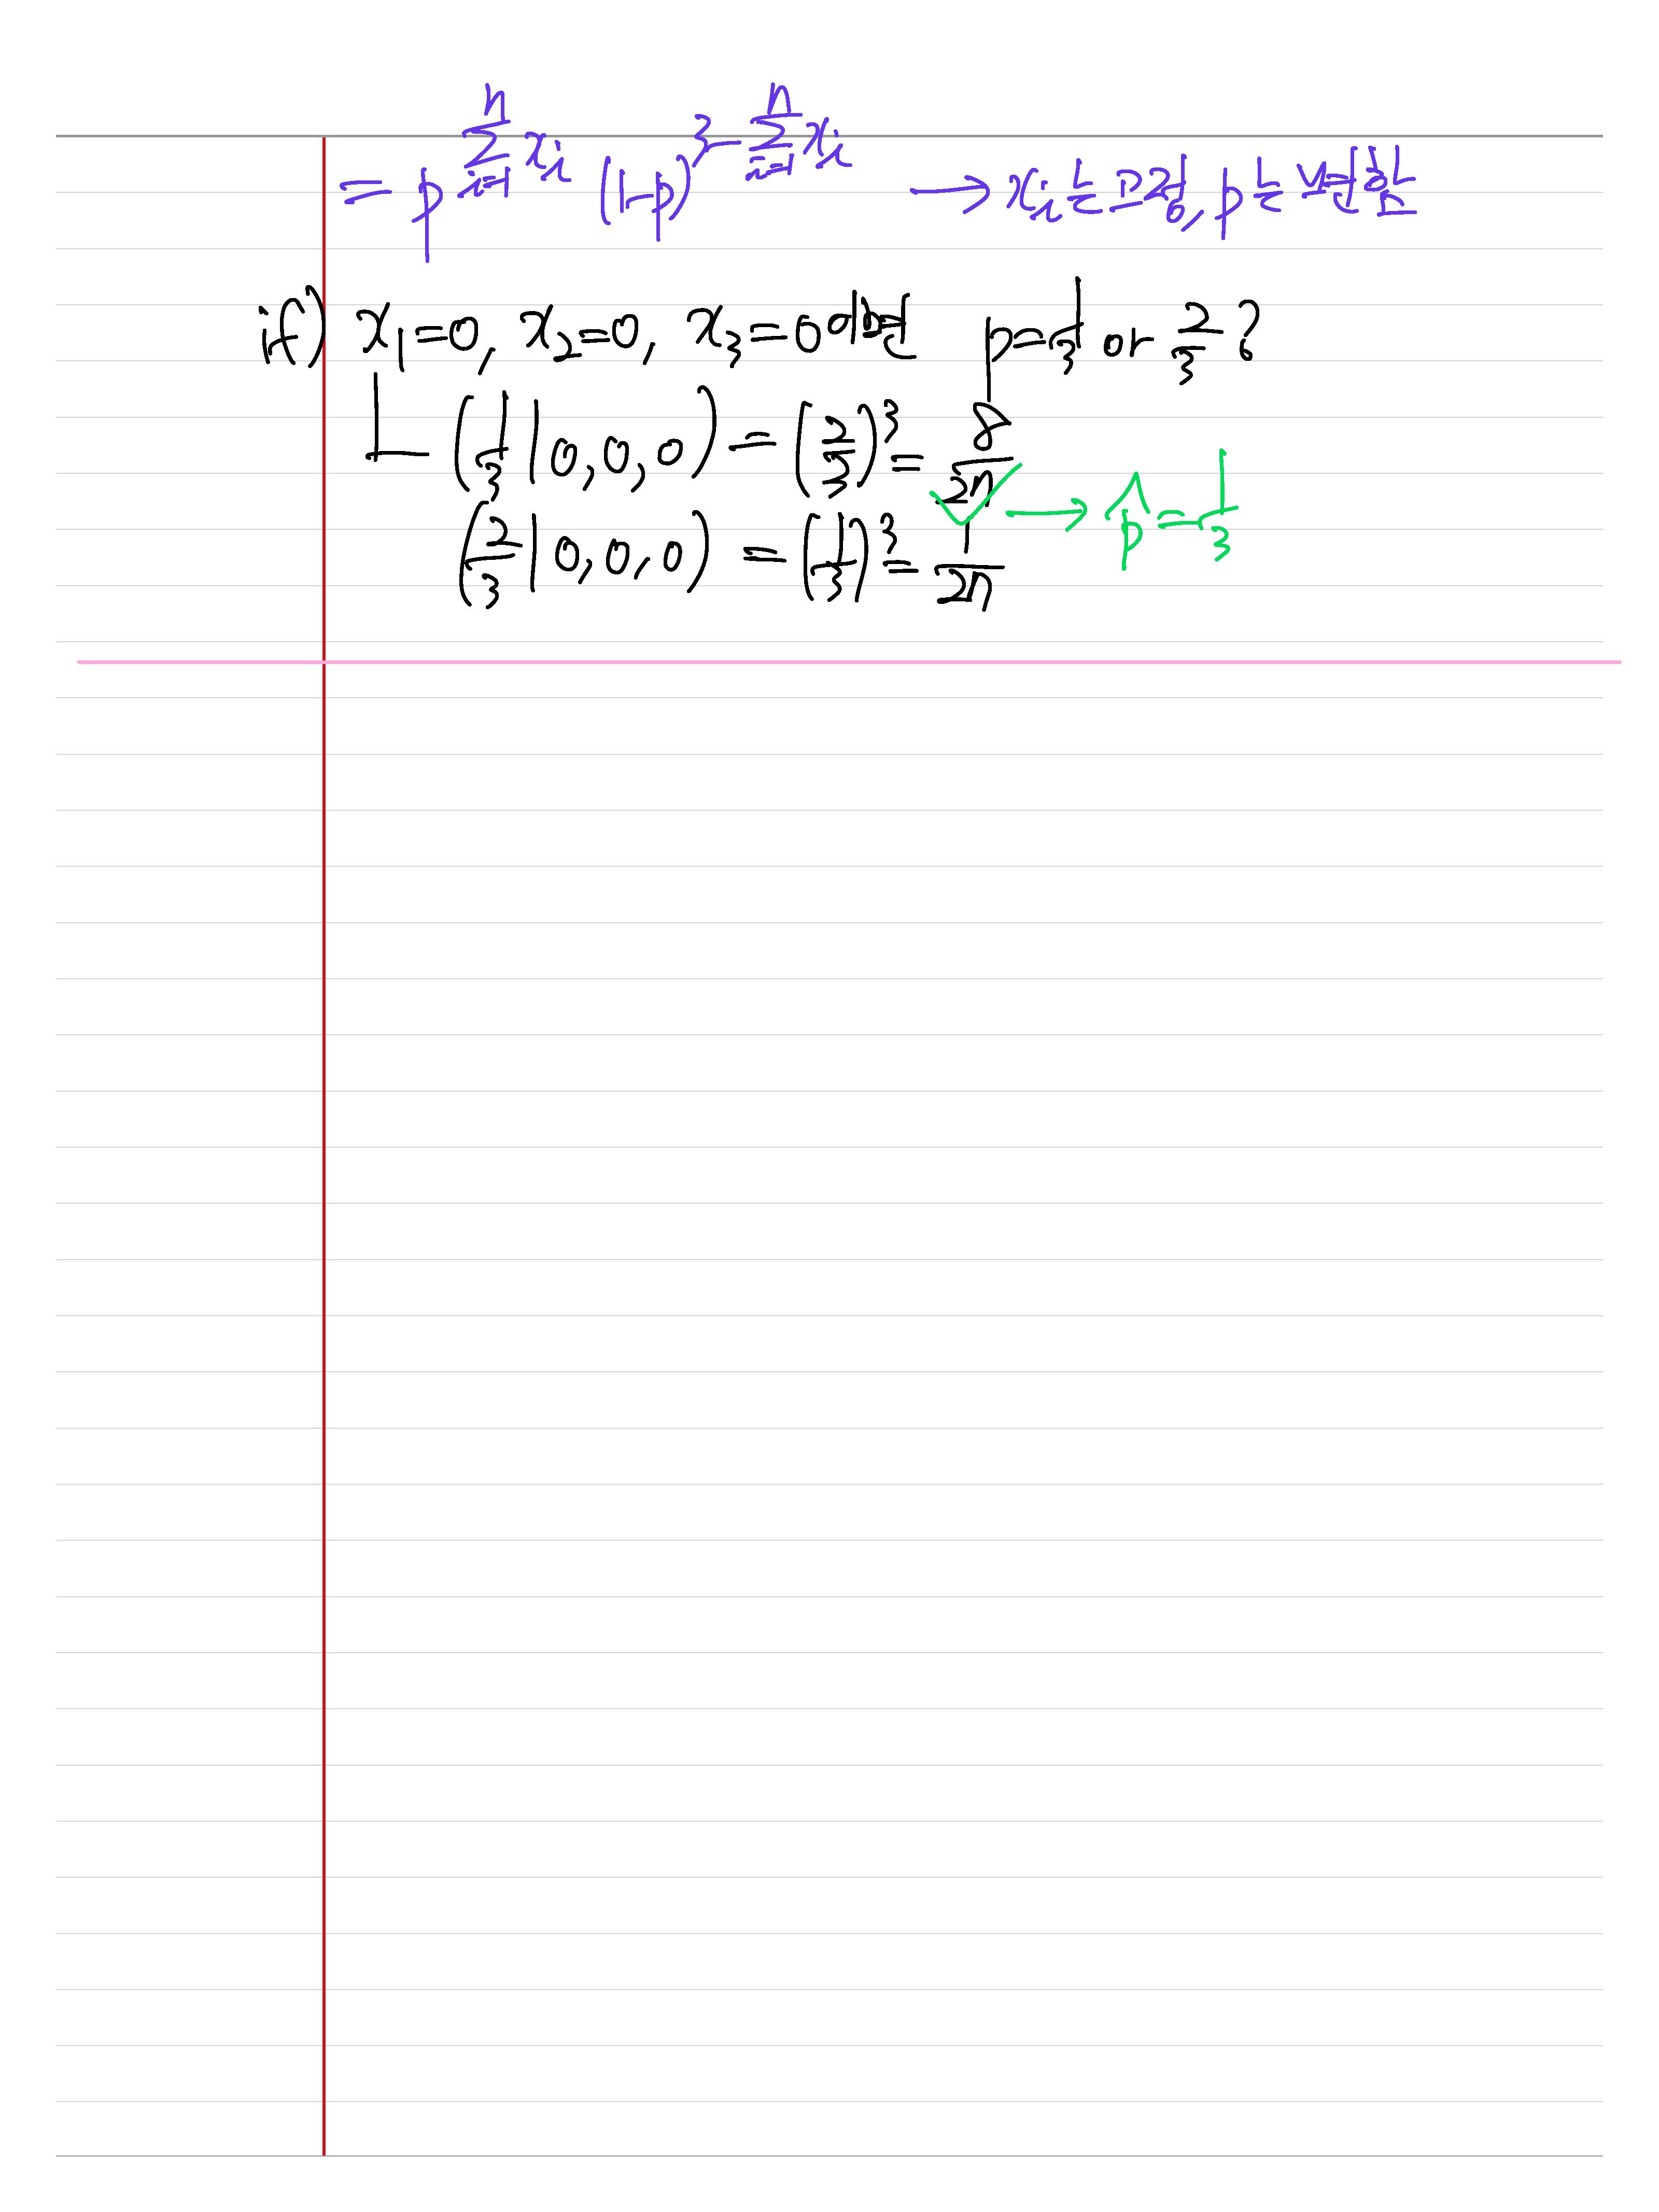 = p^{\sum_{i=1}^{n} x_i} (1-p)^{3-\sum_{i=1}^{n} x_i} → x_i는 고정, p는 변하는
if) x_1=0, x_2=0, x_3=0이라면 p=\frac{1}{3} or \frac{2}{3}?
L(\frac{1}{3}|0,0,0) = (\frac{2}{3})^3 = \frac{8}{27} ✓ → \hat{p}=\frac{1}{3}
(\frac{2}{3}|0,0,0) = (\frac{1}{3})^3 = \frac{1}{27}